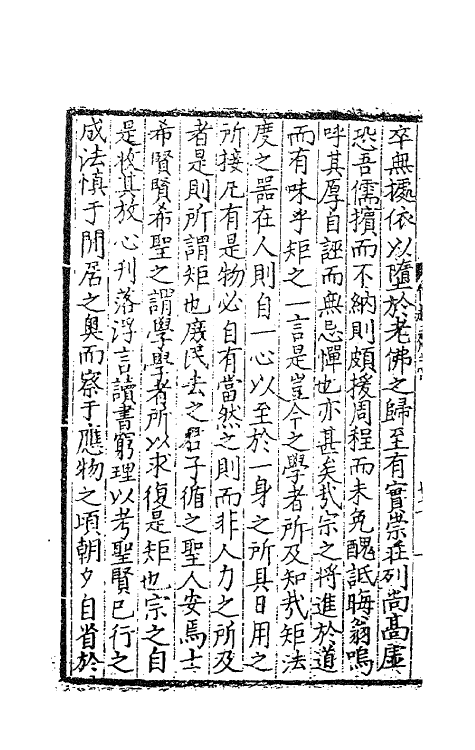 卒無據依以墮於老佛之歸至有實崇莊列尚高虛
恐吾儒擯而不納則頗援周程而未免醜詆晦翁嗚
呼其厚自誣而無忌憚也亦甚矣㢤宗之將進於道
而有味乎矩之一言是豈今之學者所及知㢤矩法
度之器在人則自一心以至於一身之所具日用之
所接凡有是物必自有當然之則而非人力之所及
者是則所謂矩也庶民去之君子循之聖人安焉士
希賢賢希聖之謂學學者所以求復是矩也宗之自
是收其放心刋落浮言讀書窮理以考聖賢已行之
成法慎于閒居之奥而察于應物之頃朝夕自省於